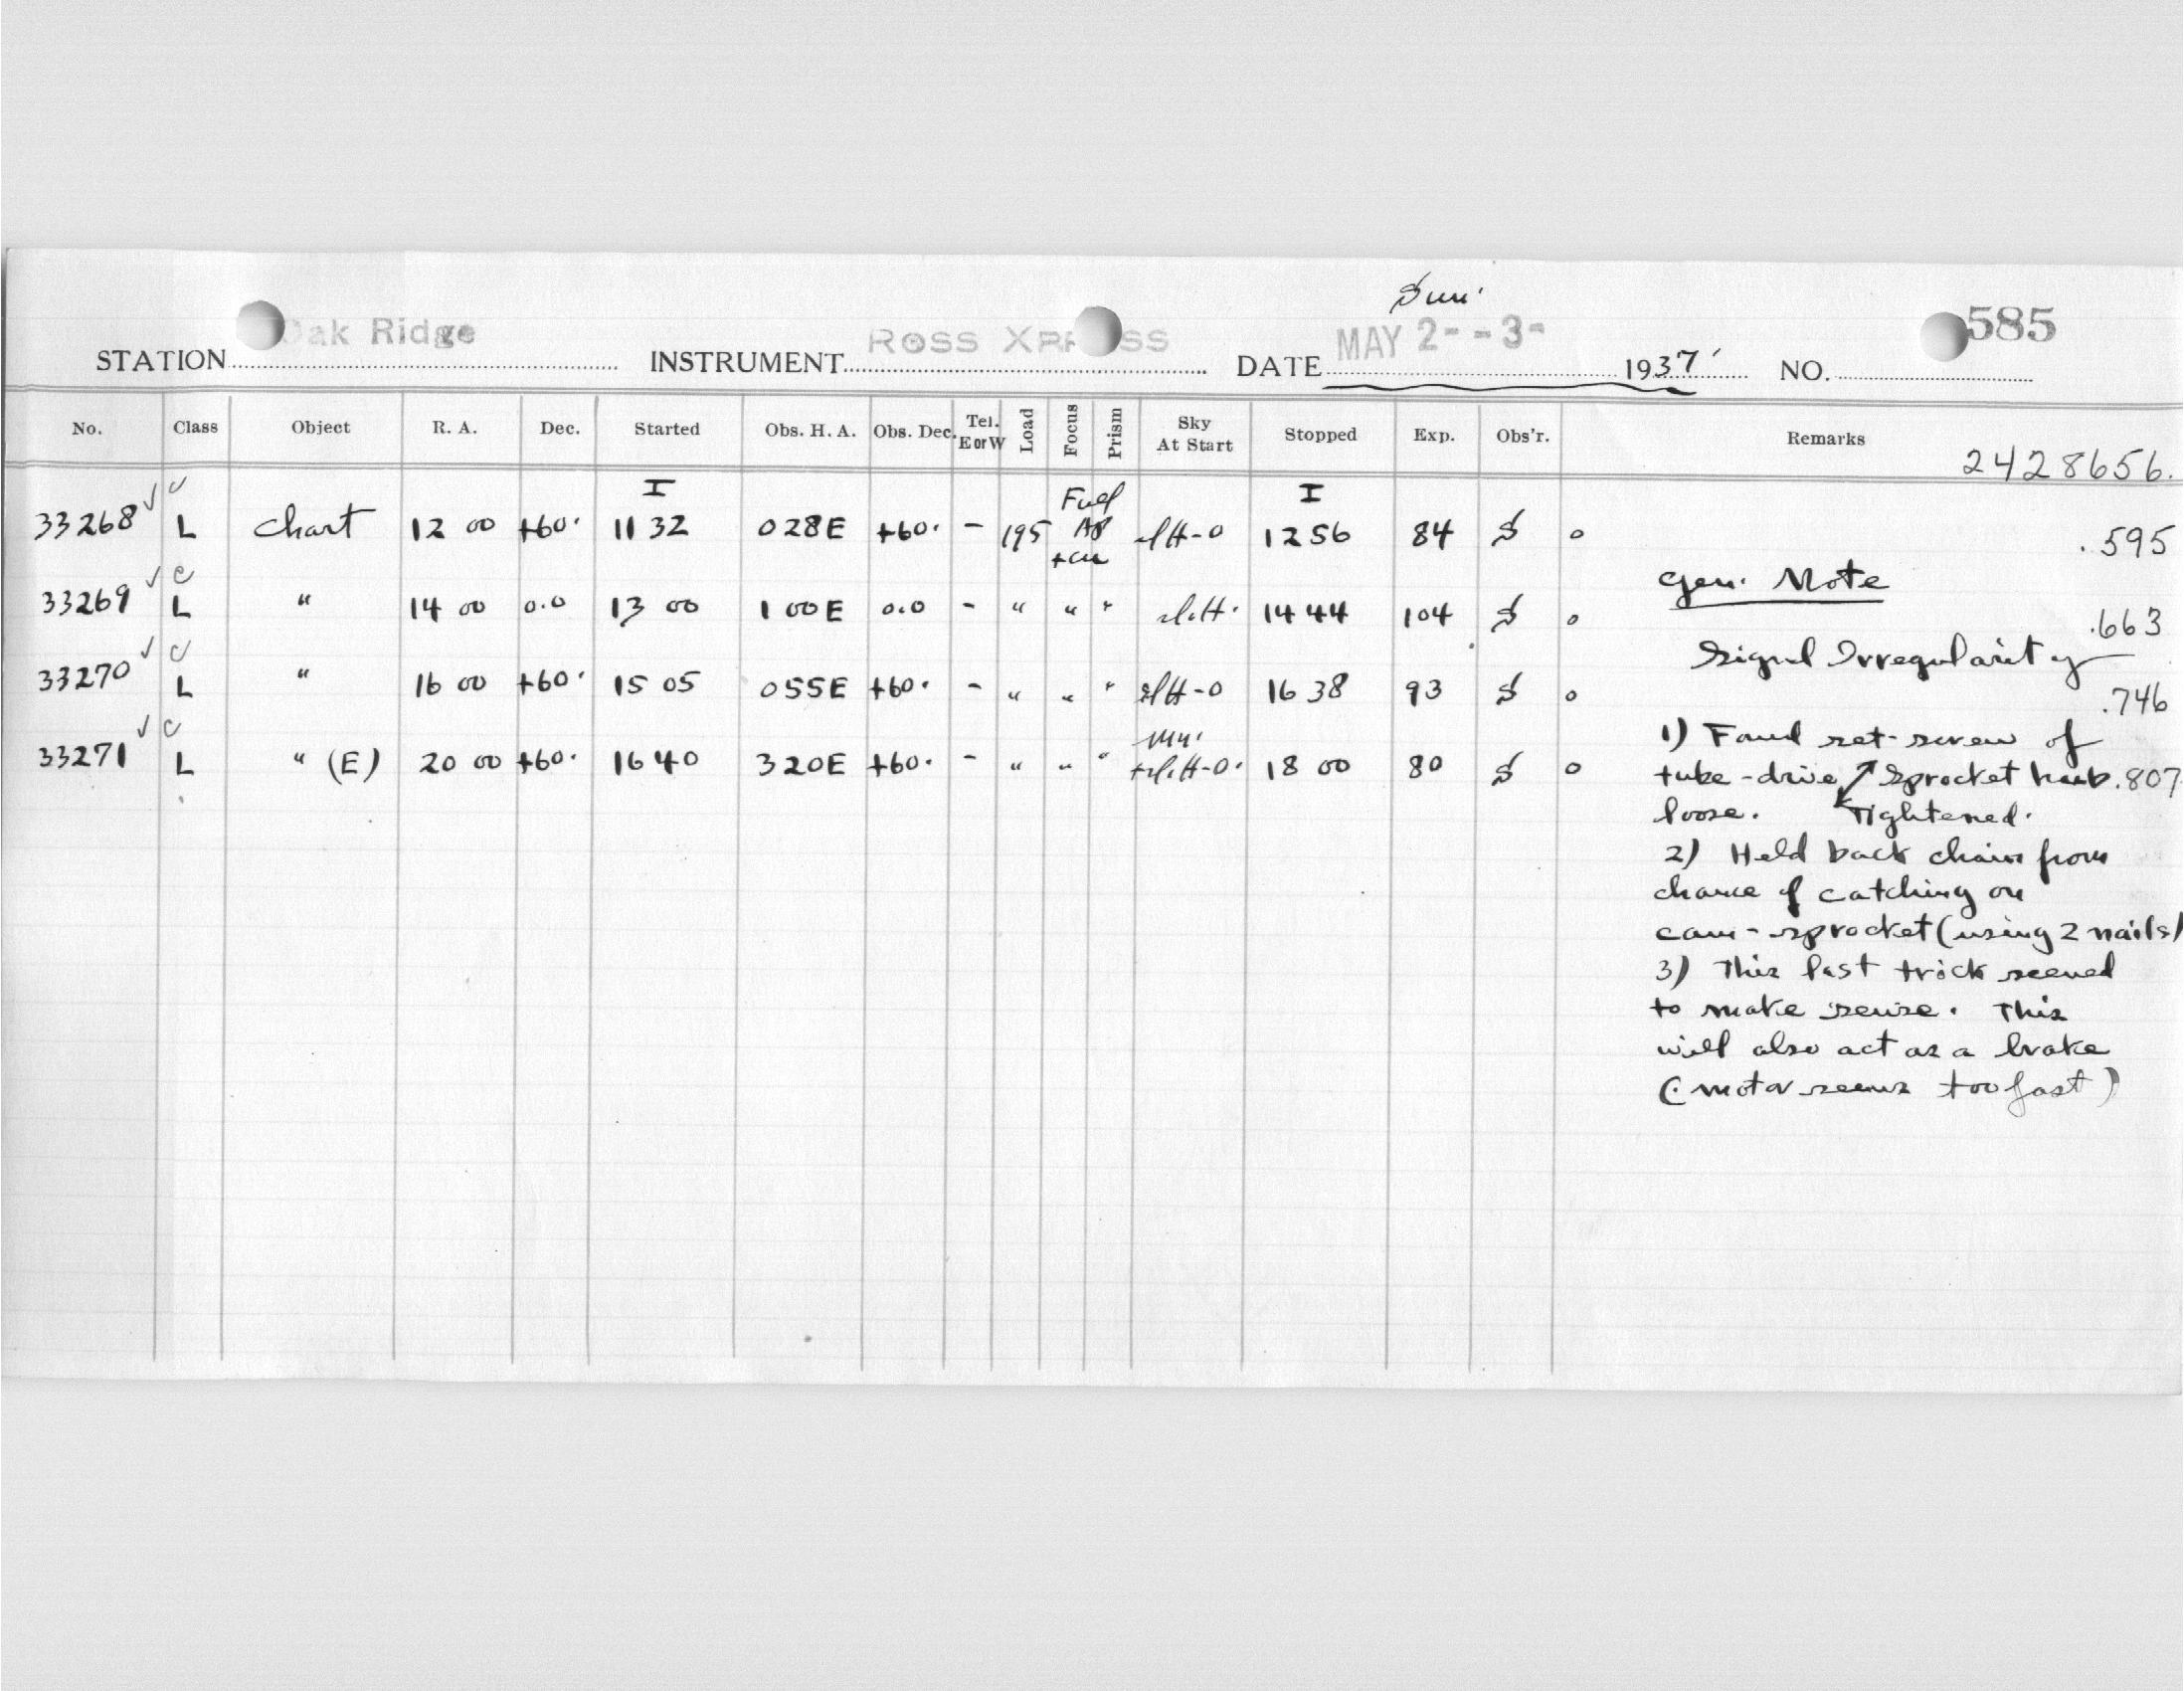 Sun.
STATION Oak Ridge INSTRUMENT ROSS XPR SS DATE MAY 2- -3- 1937 NO. 585
No. Class Object R. A. Dec. Started Obs. H. A. Obs. Dec. Tel. E or W Load Focus Prism Sky At Start Stopped Exp. Obs'r. Remarks
2428656.
C I Full I
33268 ✓ L Chart 12 00 +60. 11 32 0 28E +60. - 195 Ap slH-0 12 56 84 S 0 .595
C
33269 ✓ L " 14 00 0.0 13 00 1 00E 0.0 - " " " sl.H. 14 44 104 S 0 .663
C
33270 ✓ L " 16 00 +60. 15 05 0 55E +60. - " " " slH-0 16 38 93 S 0 .746
C
33271 ✓ L " (E) 20 00 +60. 16 40 3 20E +60. - " " " +sl.H-0. 18 00 80 S 0 .807
Gen. Note
Signal Irregularity
1) Found set-screw of
tube-drive sprocket hub
loose. Tightened.
2) Held back chain from
chance of catching on
cam-sprocket (using 2 nails)
3) This last trick seemed
to make sense. This
will also act as a brake
(motor seems too fast)